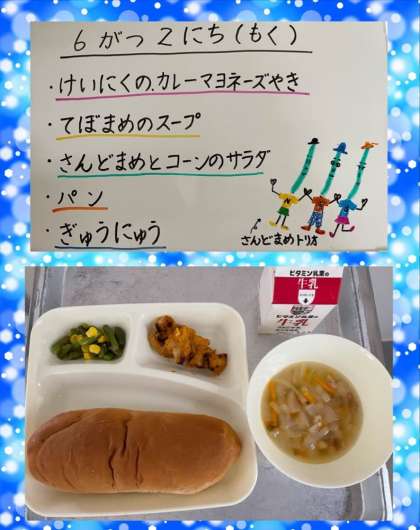 6がつ2にち(もく)
・けいにくの.カレーマヨネーズやき
・てぼまめのスープ
・さんどまめとコーンのサラダ
・パン
・ぎゅうにゅう
さんどまめトリオ
ビタミン乳業の
牛乳
ビタミン乳業の
牛乳